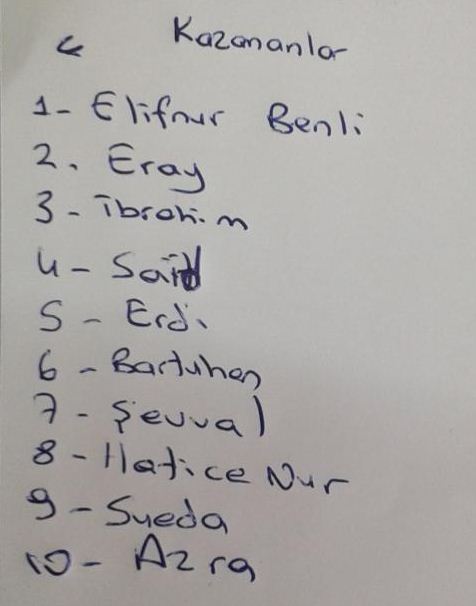 Kazananlar
1- Elifnur Benli
2. Eray
3- İbrahim
4- Said
5- Erdi
6- Bartuhan
7- Şevval
8- Hatice Nur
9- Sueda
10- Azra